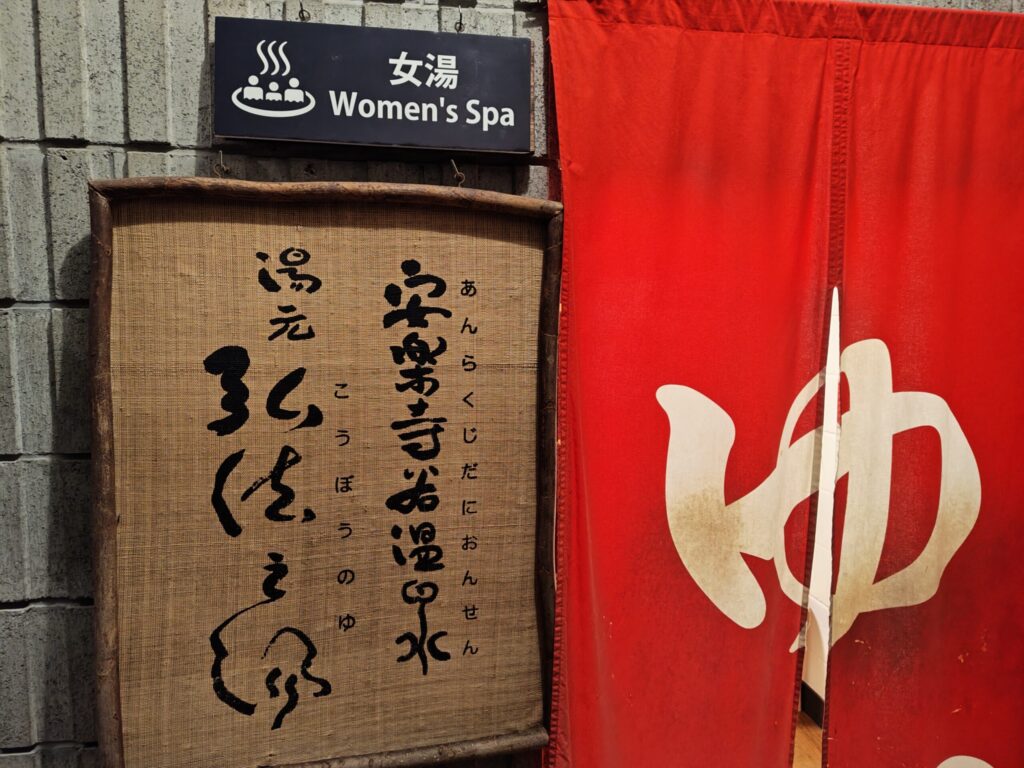 女湯
Women's Spa
安楽寺谷温泉
あんらくじだにおんせん
湯元
弘法之湯
こうぼうのゆ
ゆ